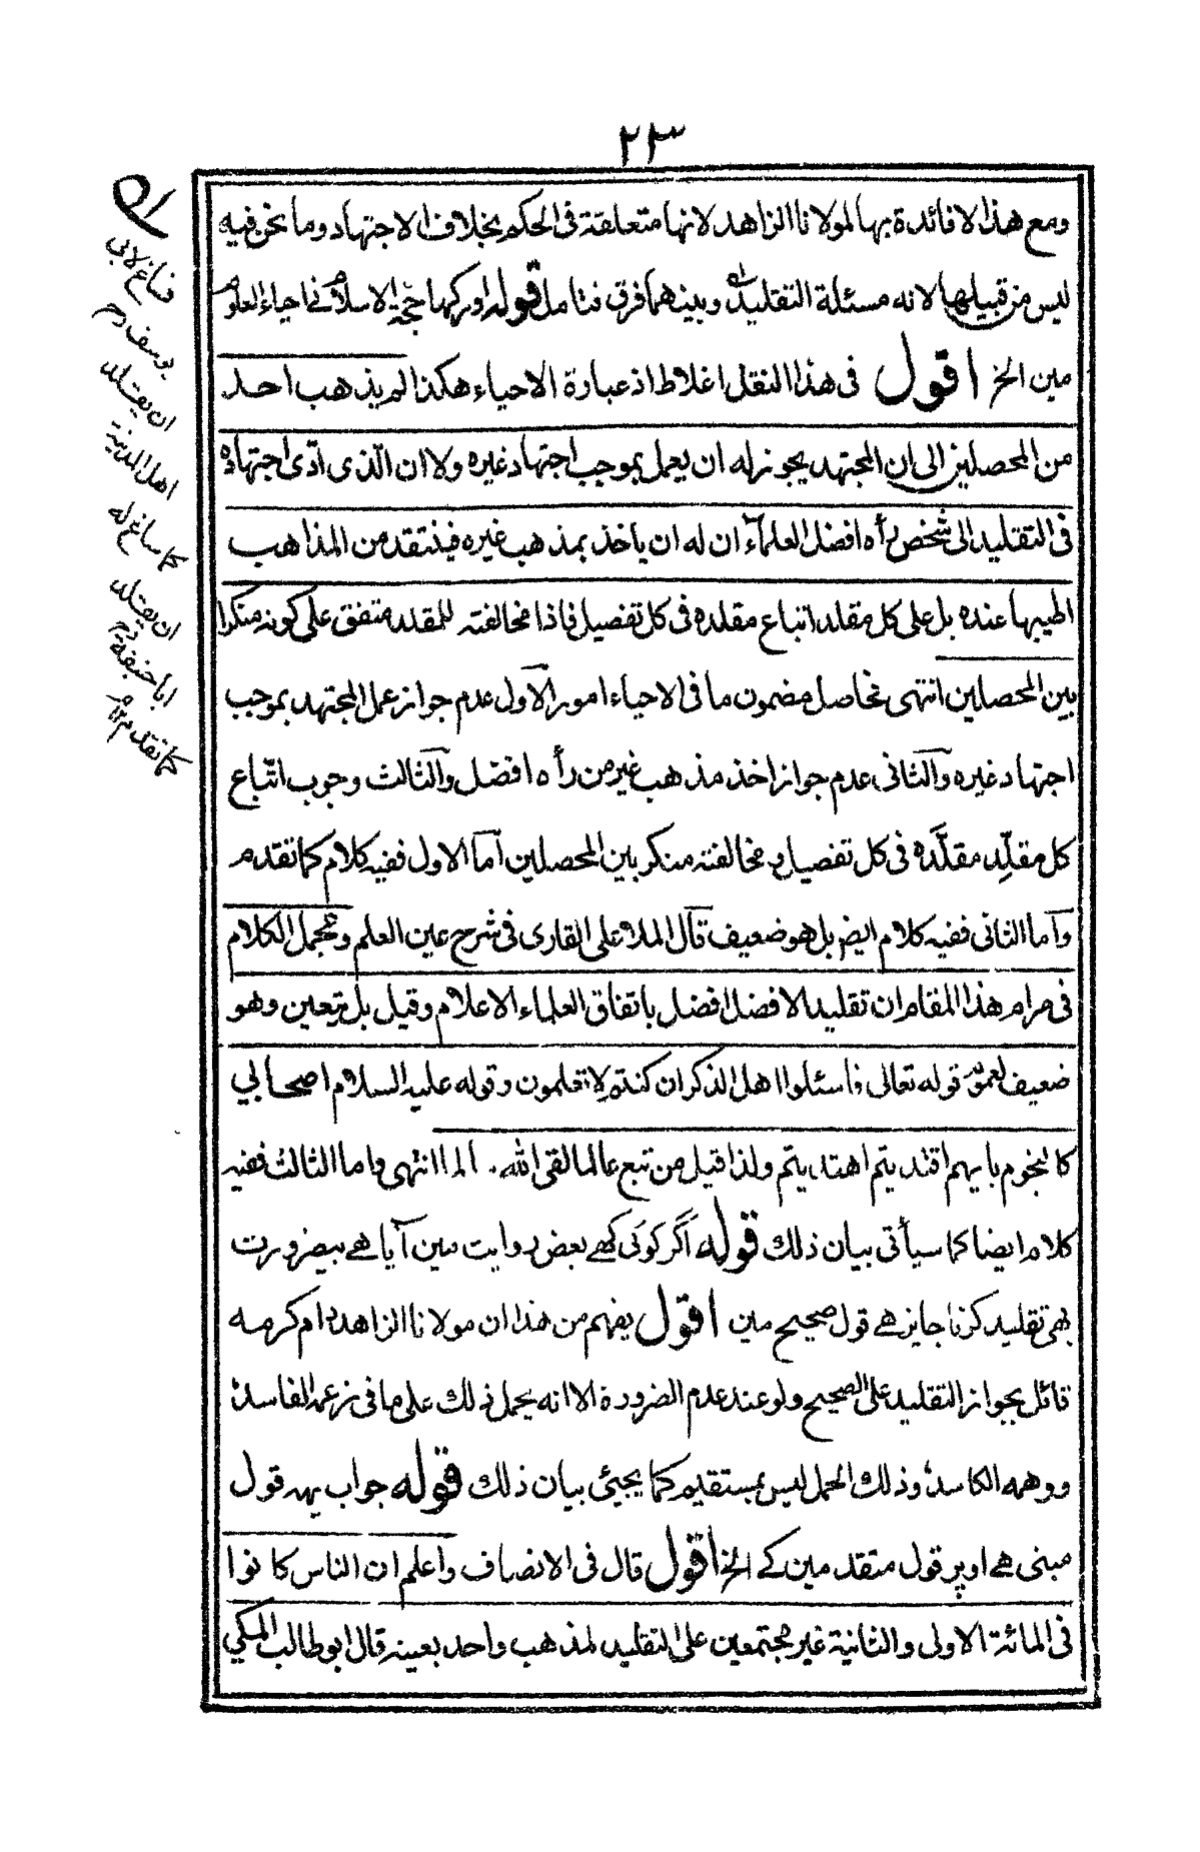 ٢٣
ومع هذا لا فائدة بها لمولانا الزاهد لانها متعلقة فى الحكم بخلاف الاجتهاد وما نحن فيه
ليس من قبيلها لانه مسئلة التقليد وبينهما فرق فتامل قوله اور کہا حجة الاسلام نے احياء العلوم
مين الخ اقول فى هذا النقل اغلاط اذ عبارة الاحياء هكذا لم يذهب احد
من المحصلين الى ان المجتهد يجوز له ان يعمل بموجب اجتهاد غيره ولا ان الّذى ادّى اجتهاده
فى التقليد الى شخص رأه افضل العلماء ان له ان ياخذ بمذهب غيره فينتقد من المذاهب
اطيبها عنده بل على كل مقلد اتباع مقلده فى كل تفصيل فاذا مخالفته للمقلد متفق على كونه منكرا
بين المحصلين انتهى فحاصل مضمون ما فى الاحياء امور الاول عدم جواز عمل المجتهد بموجب
اجتهاد غيره والثانى عدم جواز اخذ مذهب غير من رأه افضل والثالث وجوب اتّباع
كل مقلِّد مقلَّده فى كل تفصيل و مخالفته منكر بين المحصلين اما الاول ففيه كلام كما تقدم
واما الثانى ففيه كلام ايضا بل هو ضعيف قال الملا على القارى فى شرح عين العلم ومجمل الكلام
فى مرام هذا المقام ان تقليد الافضل افضل باتفاق العلماء الاعلام وقيل بل يتعين وهو
ضعيف لعموم قوله تعالى فاسئلوا اهل الذكر ان كنتم لا تعلمون وقوله عليه السلام اصحابي
كالنجوم بايهم اقتديتم اهتديتم ولذا قيل من تبع عالما لقى الله سالما انتهى واما الثالث ففيه
كلام ايضا كما سيأتى بيان ذلك قوله اگر کوئی کہے بعض روایت مین آیا ہے بیضرورت
بھی تقلید کرنا جایز ہے قول صحیح مین اقول يفهم من هذا ان مولانا الزاهد دام كرمه
قائل بجواز التقليد على الصحيح ولو عند عدم الضرورة الا انه يحمل ذلك على ما فى زعمه الفاسد
ووهمه الكاسد وذلك الحمل ليس بمستقيم كما يجيئ بيان ذلك قوله جواب یہہ قول
مبنی ہے اوپر قول متقدمین کے الخ اقول قال فى الانصاف واعلم ان الناس كانوا
فى المائة الاولى والثانية غير مجتمعين على التقليد لمذهب واحد بعينه قال ابو طالب المكي
فساغ لابي
يوسف رح
ان يقلد
اهل المدينة
كما ساغ له
ان يقلد
ابا حنيفة رح
كما تقدم